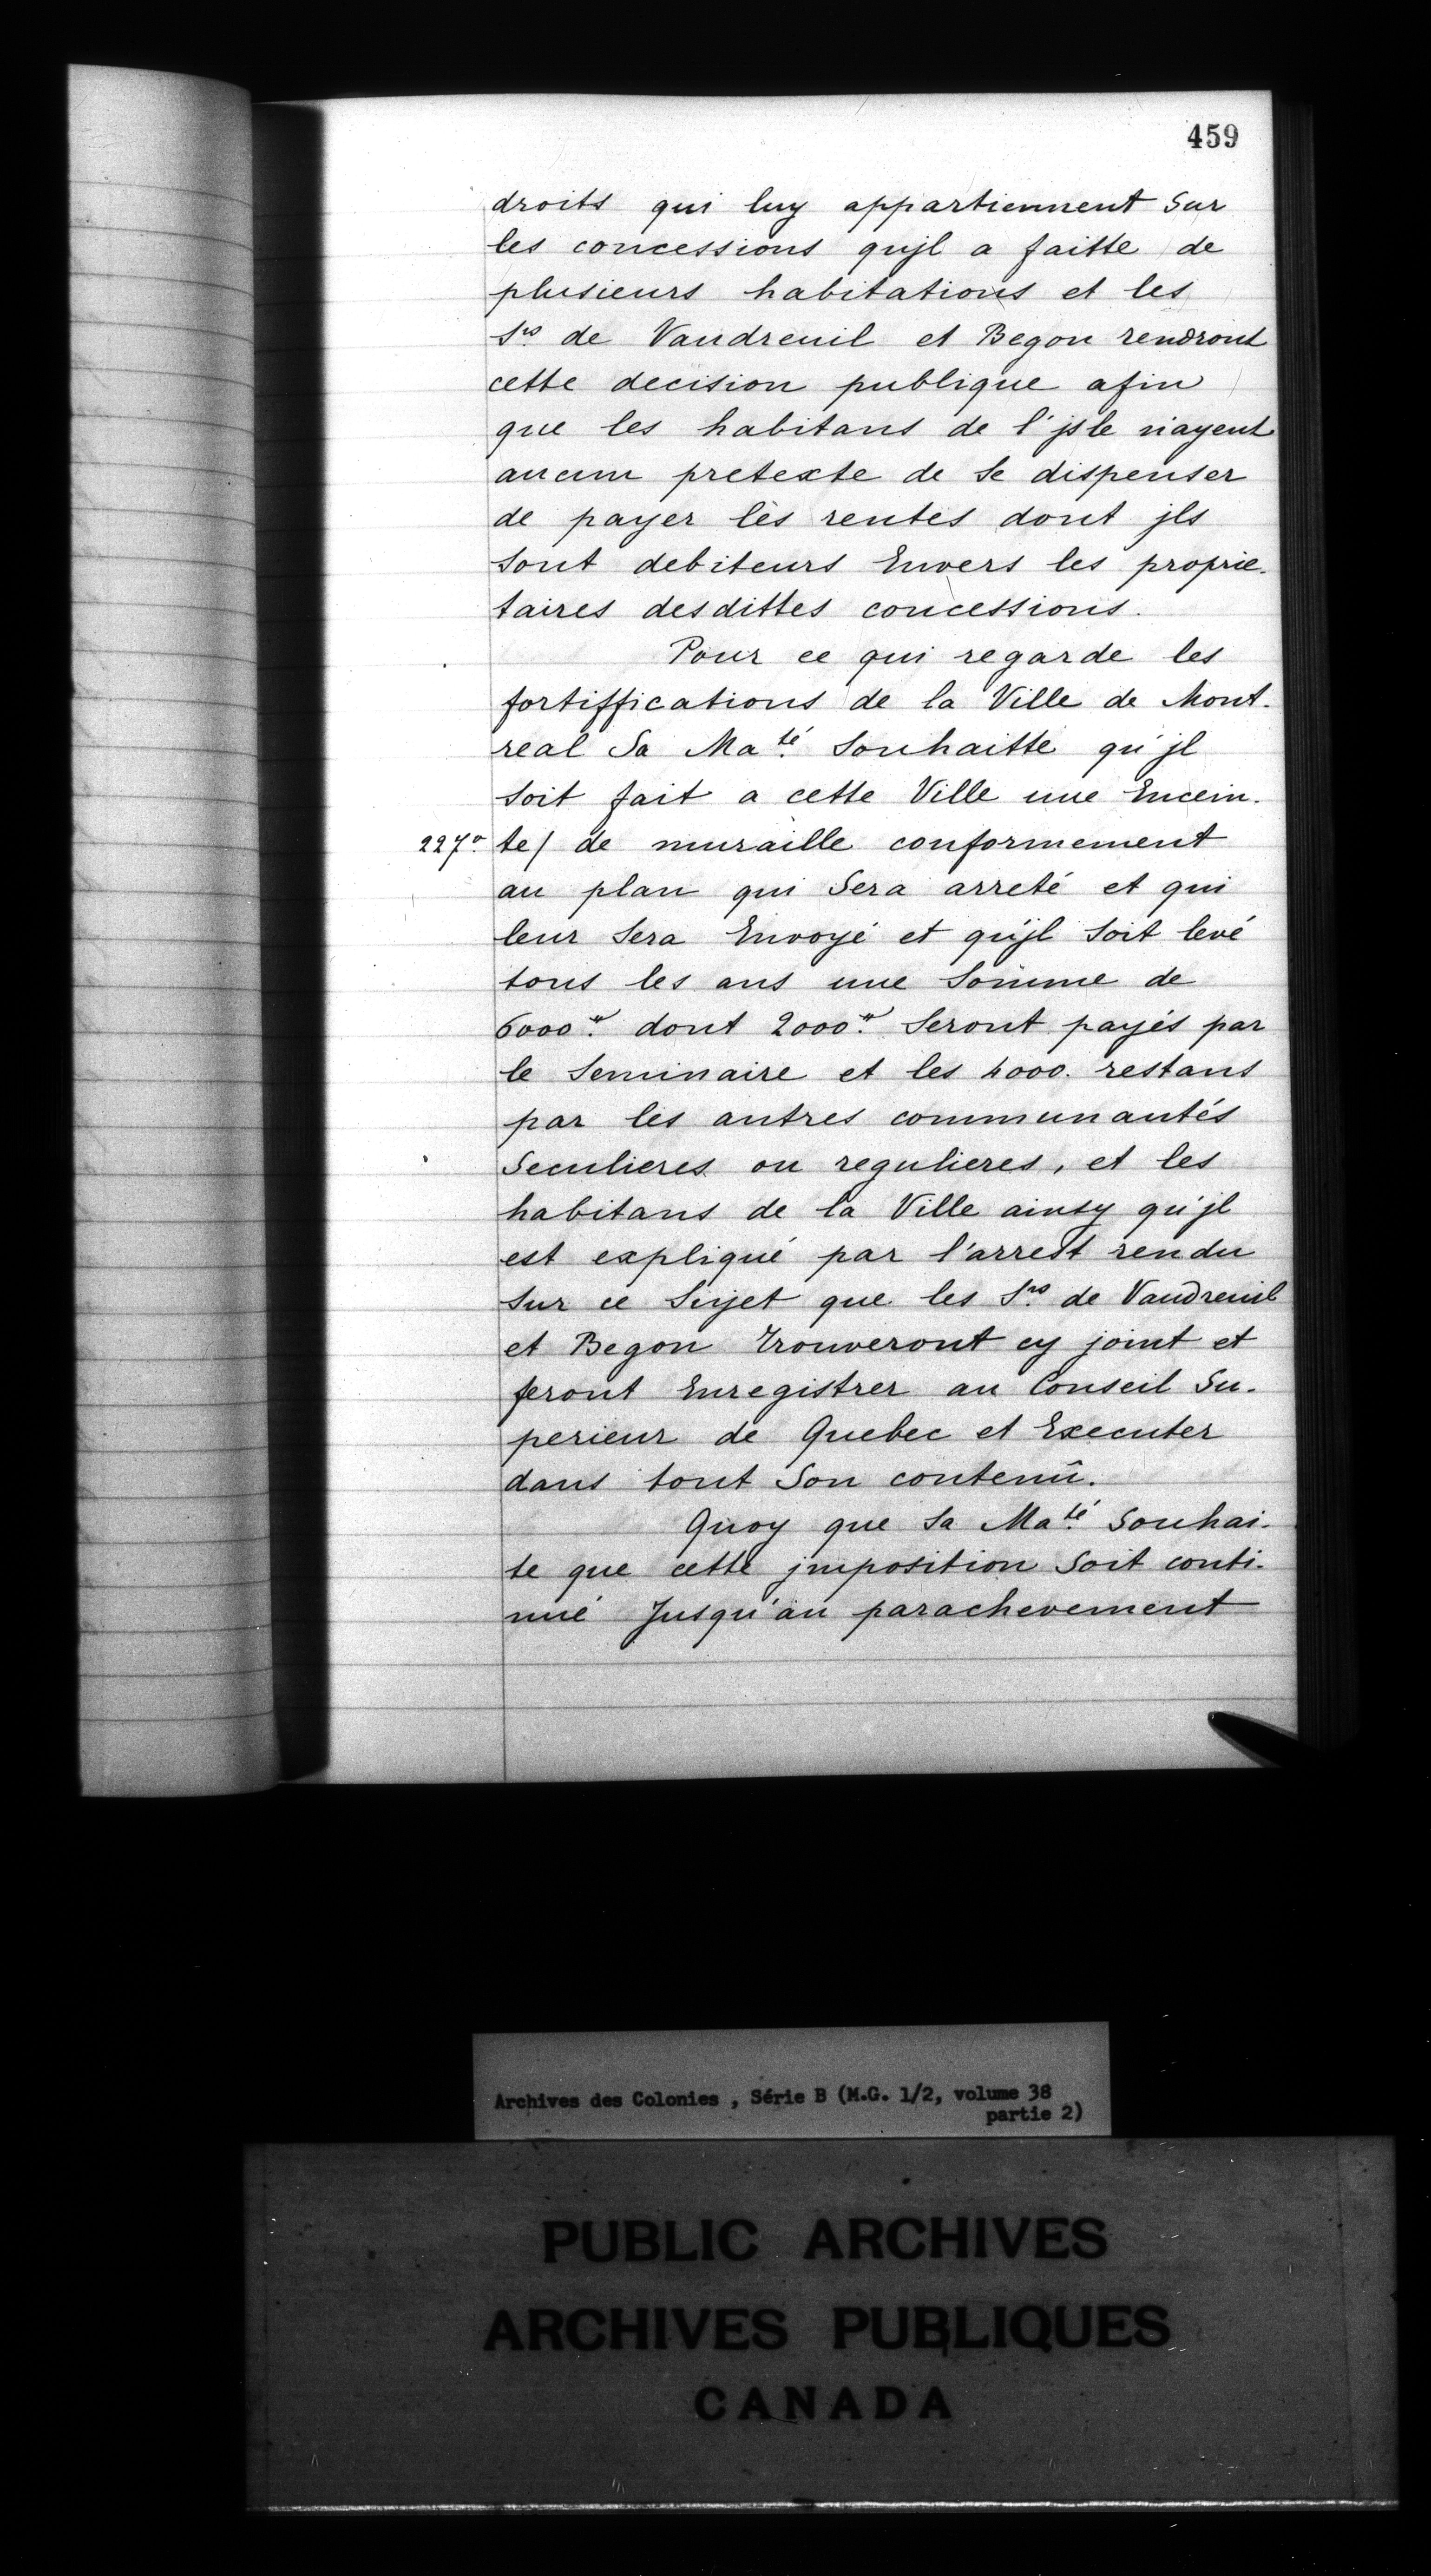 459
droits qui luy appartiennent sur
les concessions qujl a faitte de
plusieurs habitations et les
Srs. de Vaudreuil et Begon rendront
cette decision publique afin
que les habitans de l'jsle n'ayent
aucun pretexte de se dispenser
de payer les rentes dont jls
sont debiteurs Envers les proprie-
taires desdittes concessions.
Pour ce qui regarde les
fortiffications de la Ville de Mont-
real Sa Maté. souhaitte qu'jl
soit fait a cette Ville une Encein-
227o. te/ de muraille conformement
au plan qui Sera arreté et qui
leur Sera Envoyé et qu'jl soit levé
tous les ans une somme de
6000#. dont 2000#. seront payés par
le seminaire et les 4000. restans
par les autres communautés
Seculieres ou regulieres, et les
habitans de la Ville ainsy qu'jl
est expliqué par l'arrest rendu
sur ce Sujet que les Srs. de Vaudreuil
et Begon trouveront cy joint et
feront Enregistrer au Conseil Su-
perieur de Quebec et Executer
dans tout son contenû.
Quoy que sa Maté. souhai-
te que cette jmposition soit conti-
nué Jusqu'au parachevement
Archives des Colonies , Série B (M.G. 1/2, volume 38
partie 2)
PUBLIC ARCHIVES
ARCHIVES PUBLIQUES
CANADA